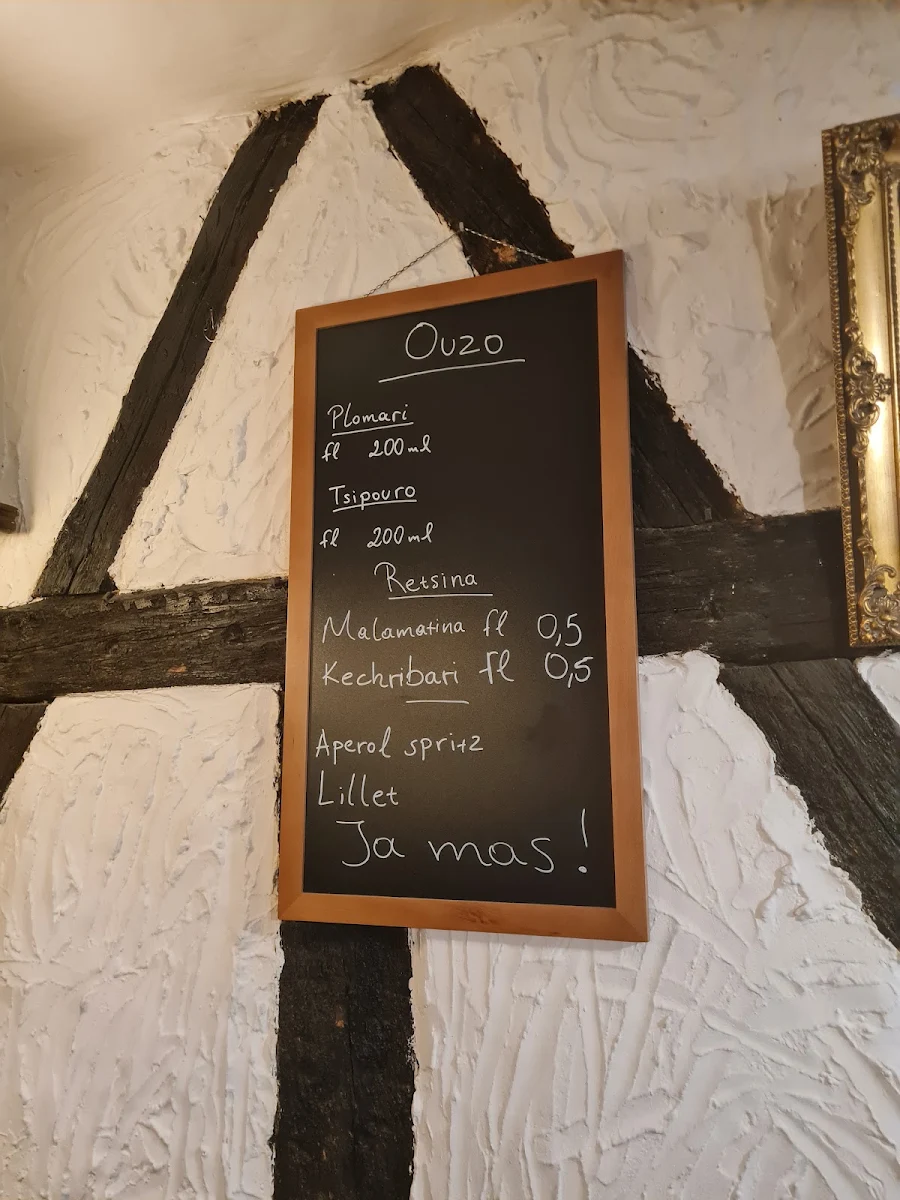 Ouzo
Plomari
fl 200ml
Tsipouro
fl 200ml
Retsina
Malamatina fl 0,5
Kechribari fl 0,5
Aperol spritz
Lillet
Ja mas!